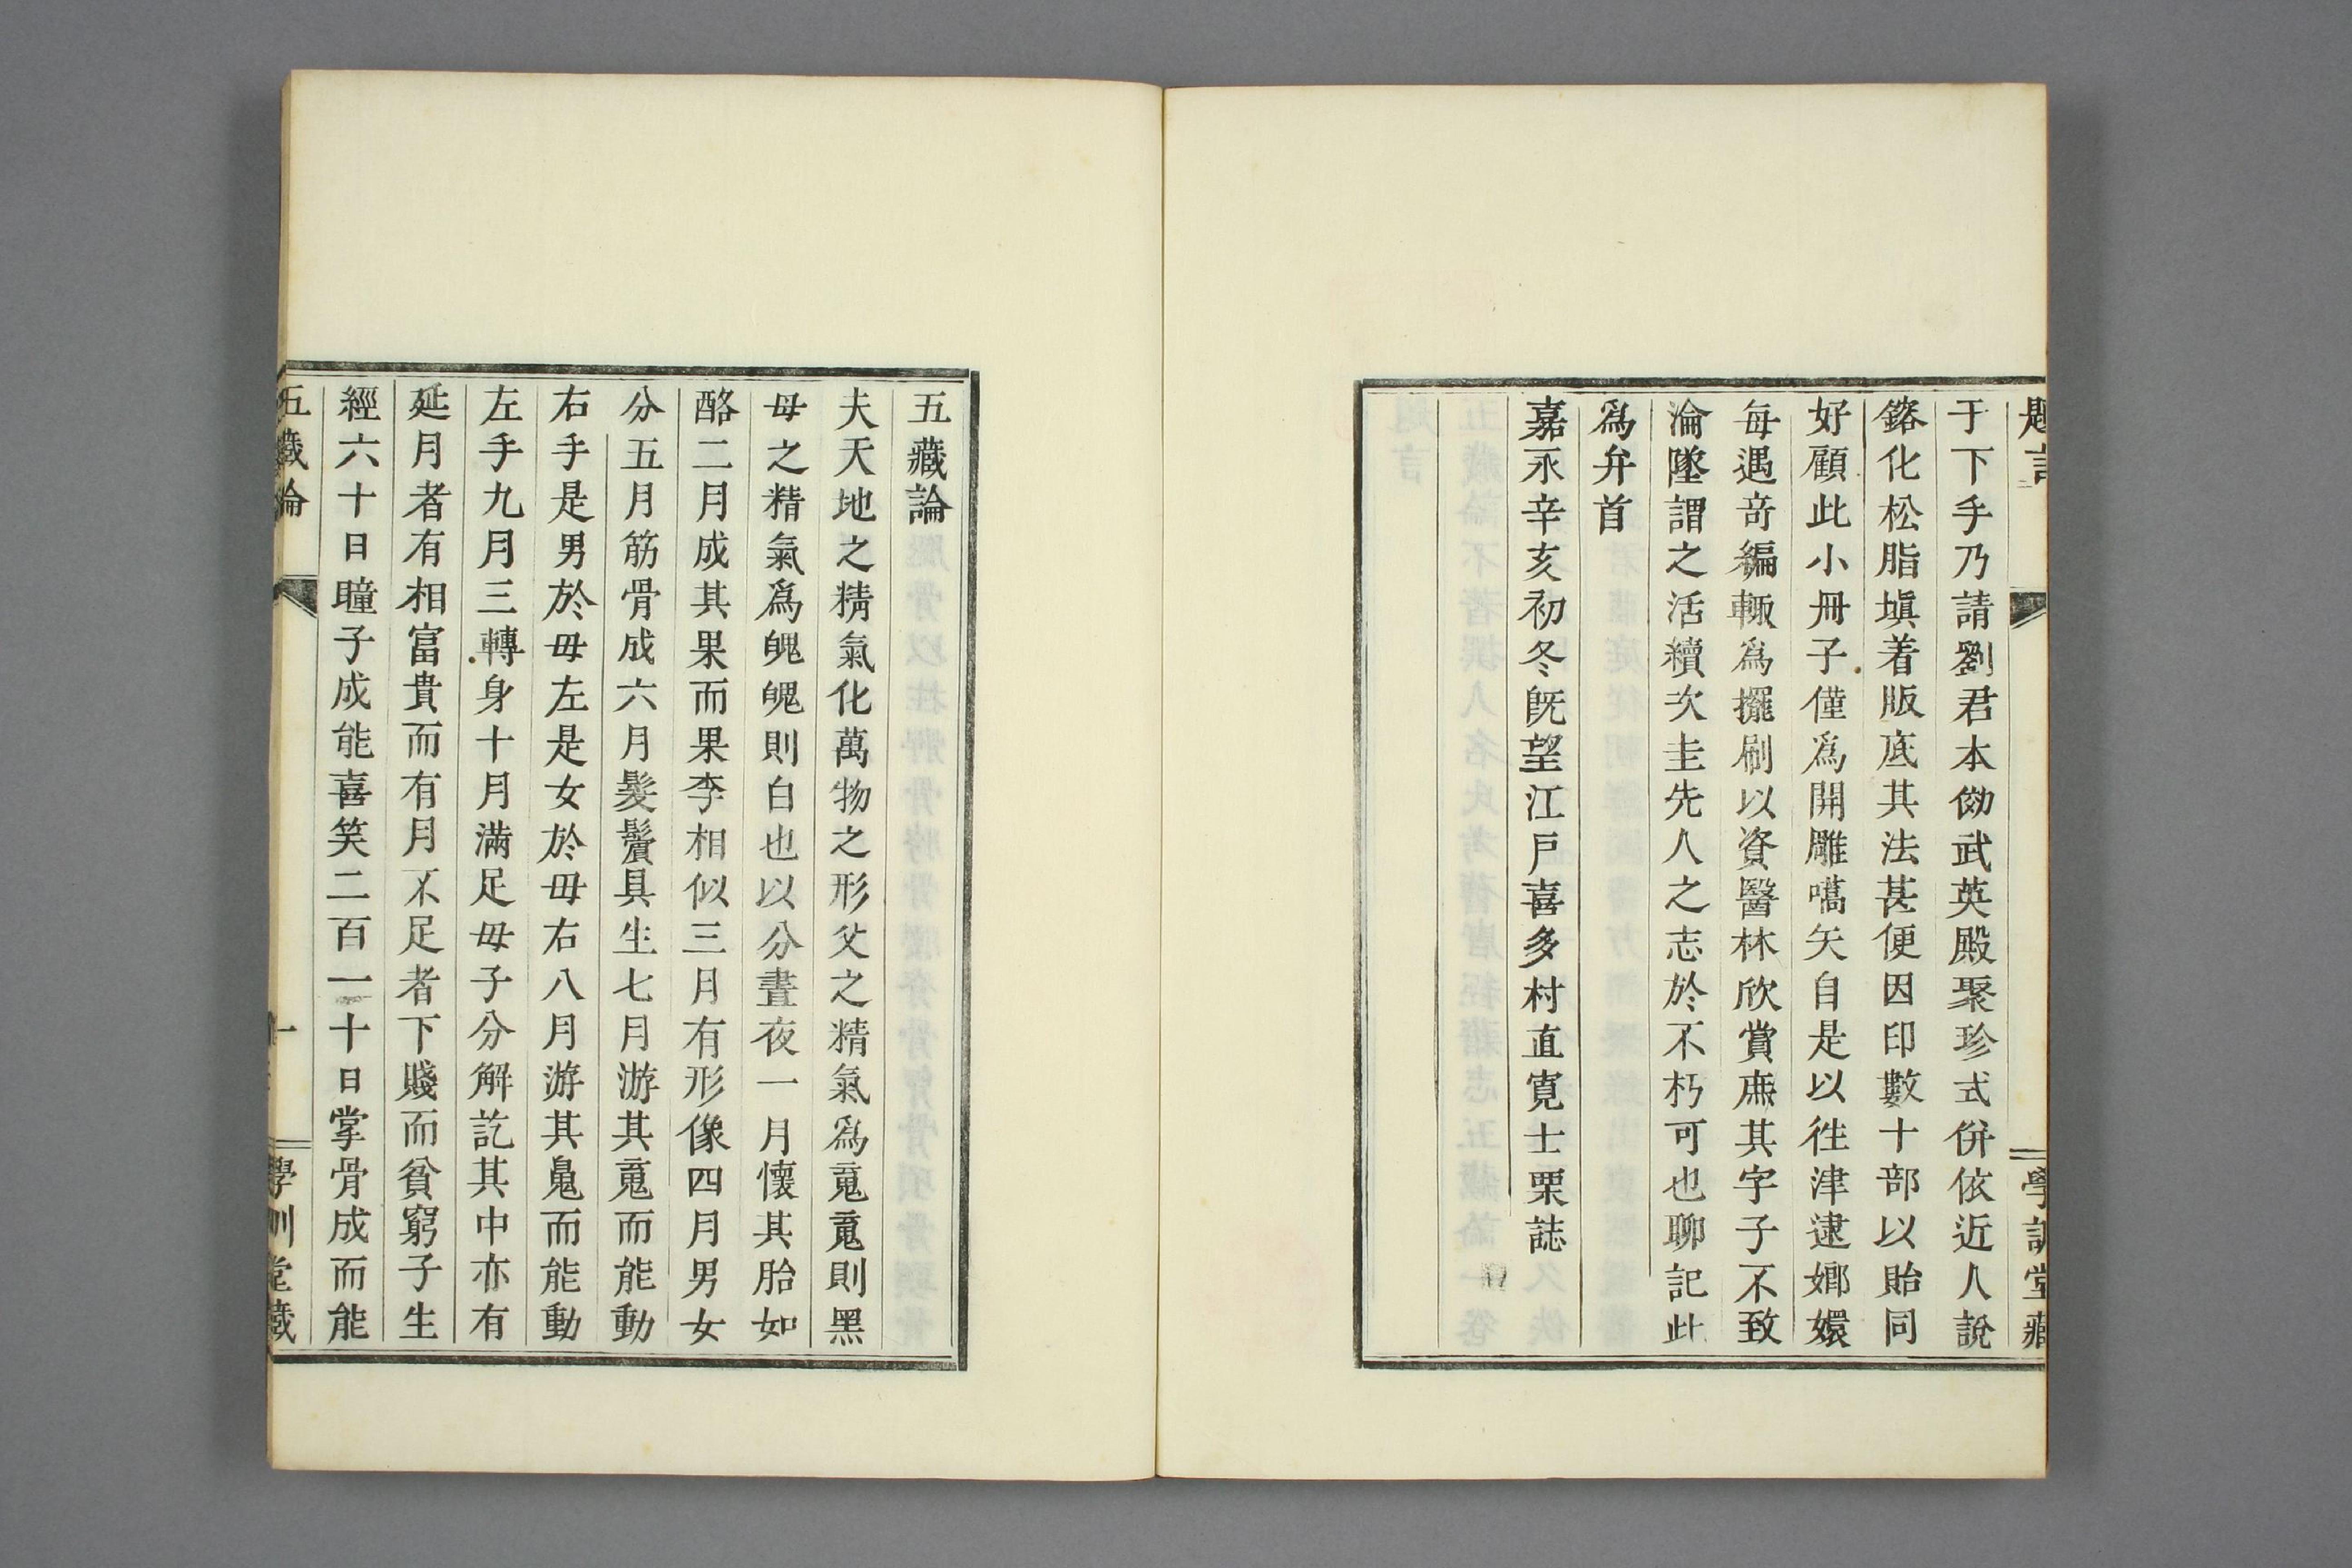 題言
學訓堂藏
于下手乃請劉君本倣武英殿聚珍式併依近人說
鎔化松脂塡着版底其法甚便因印數十部以貽同
好顧此小冊子僅爲開雕嚆矢自是以徃津逮嫏嬛
每遇奇編輙爲擺刷以資醫林欣賞庶其字子不致
淪墜謂之活續次圭先人之志於不朽可也聊記此
爲弁首
嘉永辛亥初冬旣望江戶喜多村直寬士栗誌
五藏論
夫天地之精氣化萬物之形父之精氣爲䰟䰟則黑
母之精氣爲魄魄則白也以分晝夜一月懷其胎如
酪二月成其果而果李相似三月有形像四月男女
分五月筋骨成六月髮鬢具生七月游其䰟而能動
右手是男於母左是女於母右八月游其䰟而能動
左手九月三轉身十月滿足母子分解訖其中亦有
延月者有相富貴而有月不足者下賤而貧窮子生
經六十日瞳子成能喜笑二百一十日掌骨成而能
五藏論
一
學訓堂藏